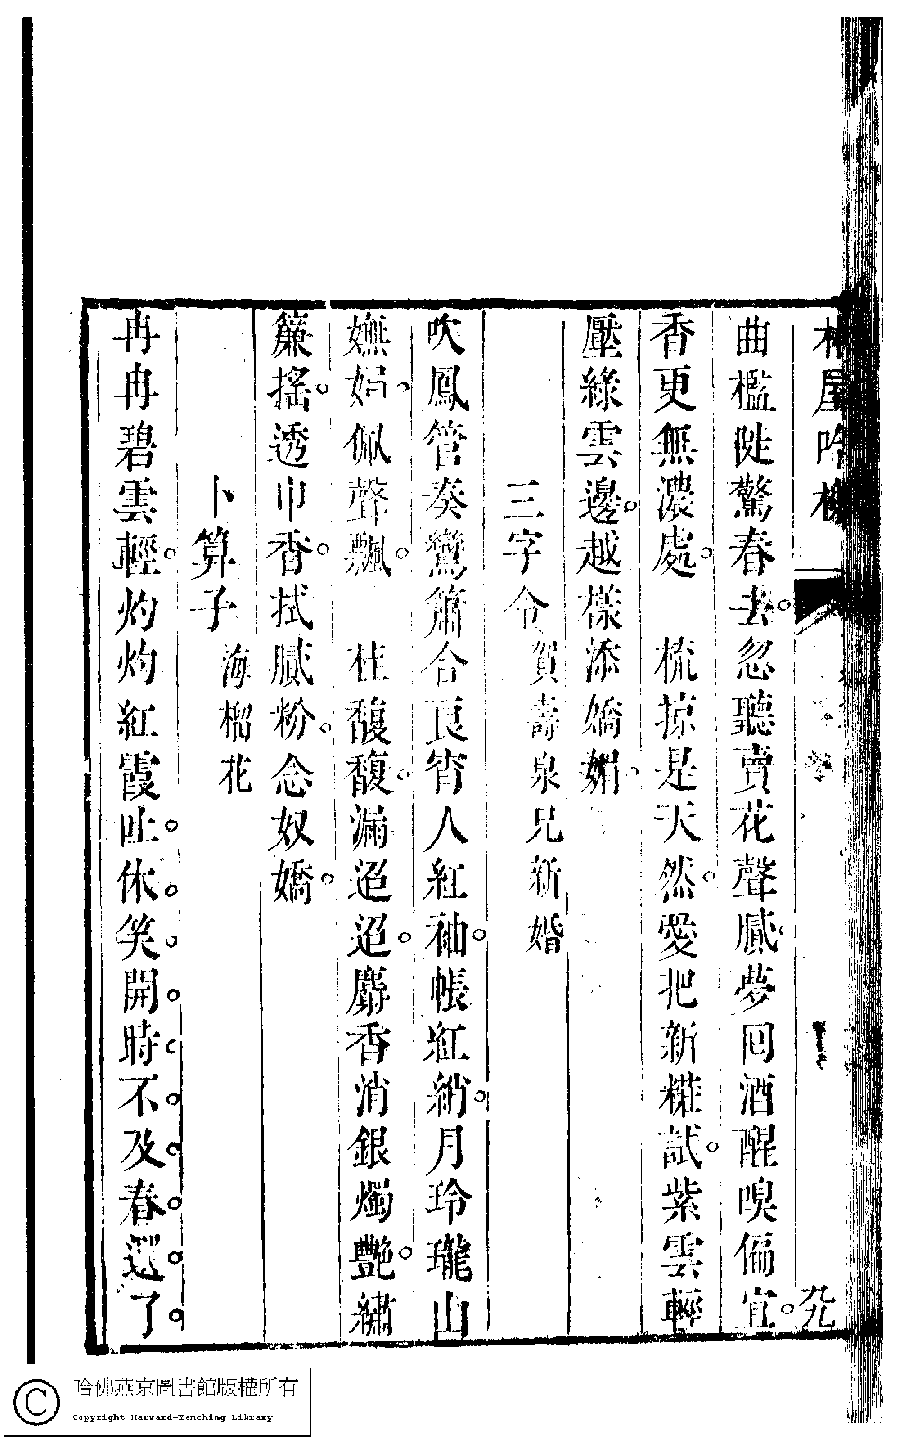 屋吟
九
曲檻陡驚春去忽聽賣花聲膩夢回酒醒嗅偏宜
香更無濃處　梳掠是天然愛把新糚試紫雲輕
壓綠雲邊越樣添嬌媚
三字令賀壽泉兄新婚
吹鳳管奏鸞簫合良宵人紅袖帳紅綃月玲瓏山
嫵娟佩聲飄　炷馥馥漏迢迢麝香消銀燭艷繡
簾搖透巾香拭膩粉念奴嬌
卜算子海榴花
冉冉碧雲輕灼灼紅霞吐休笑開時不及春還了
哈佛燕京圖書館版權所有
Copyright Harvard-Yenching Library